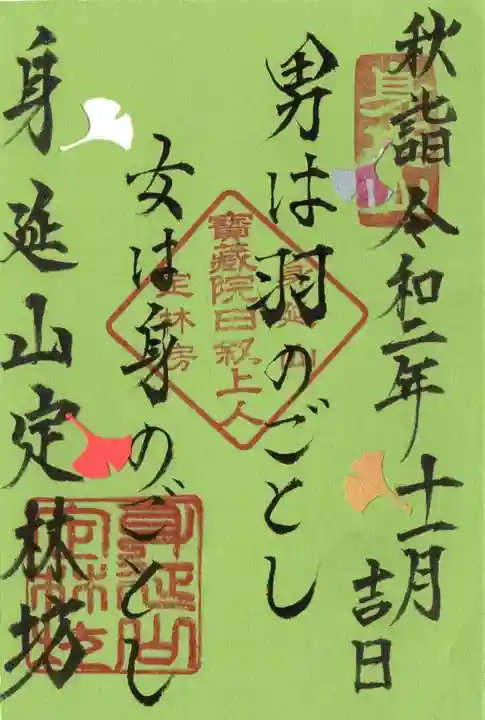 秋詣 令和二年 十一月 吉日
男は羽のごとし
女は身のごとし
身延山定林坊
身延山
寳藏院日叙上人
定林房
身延山